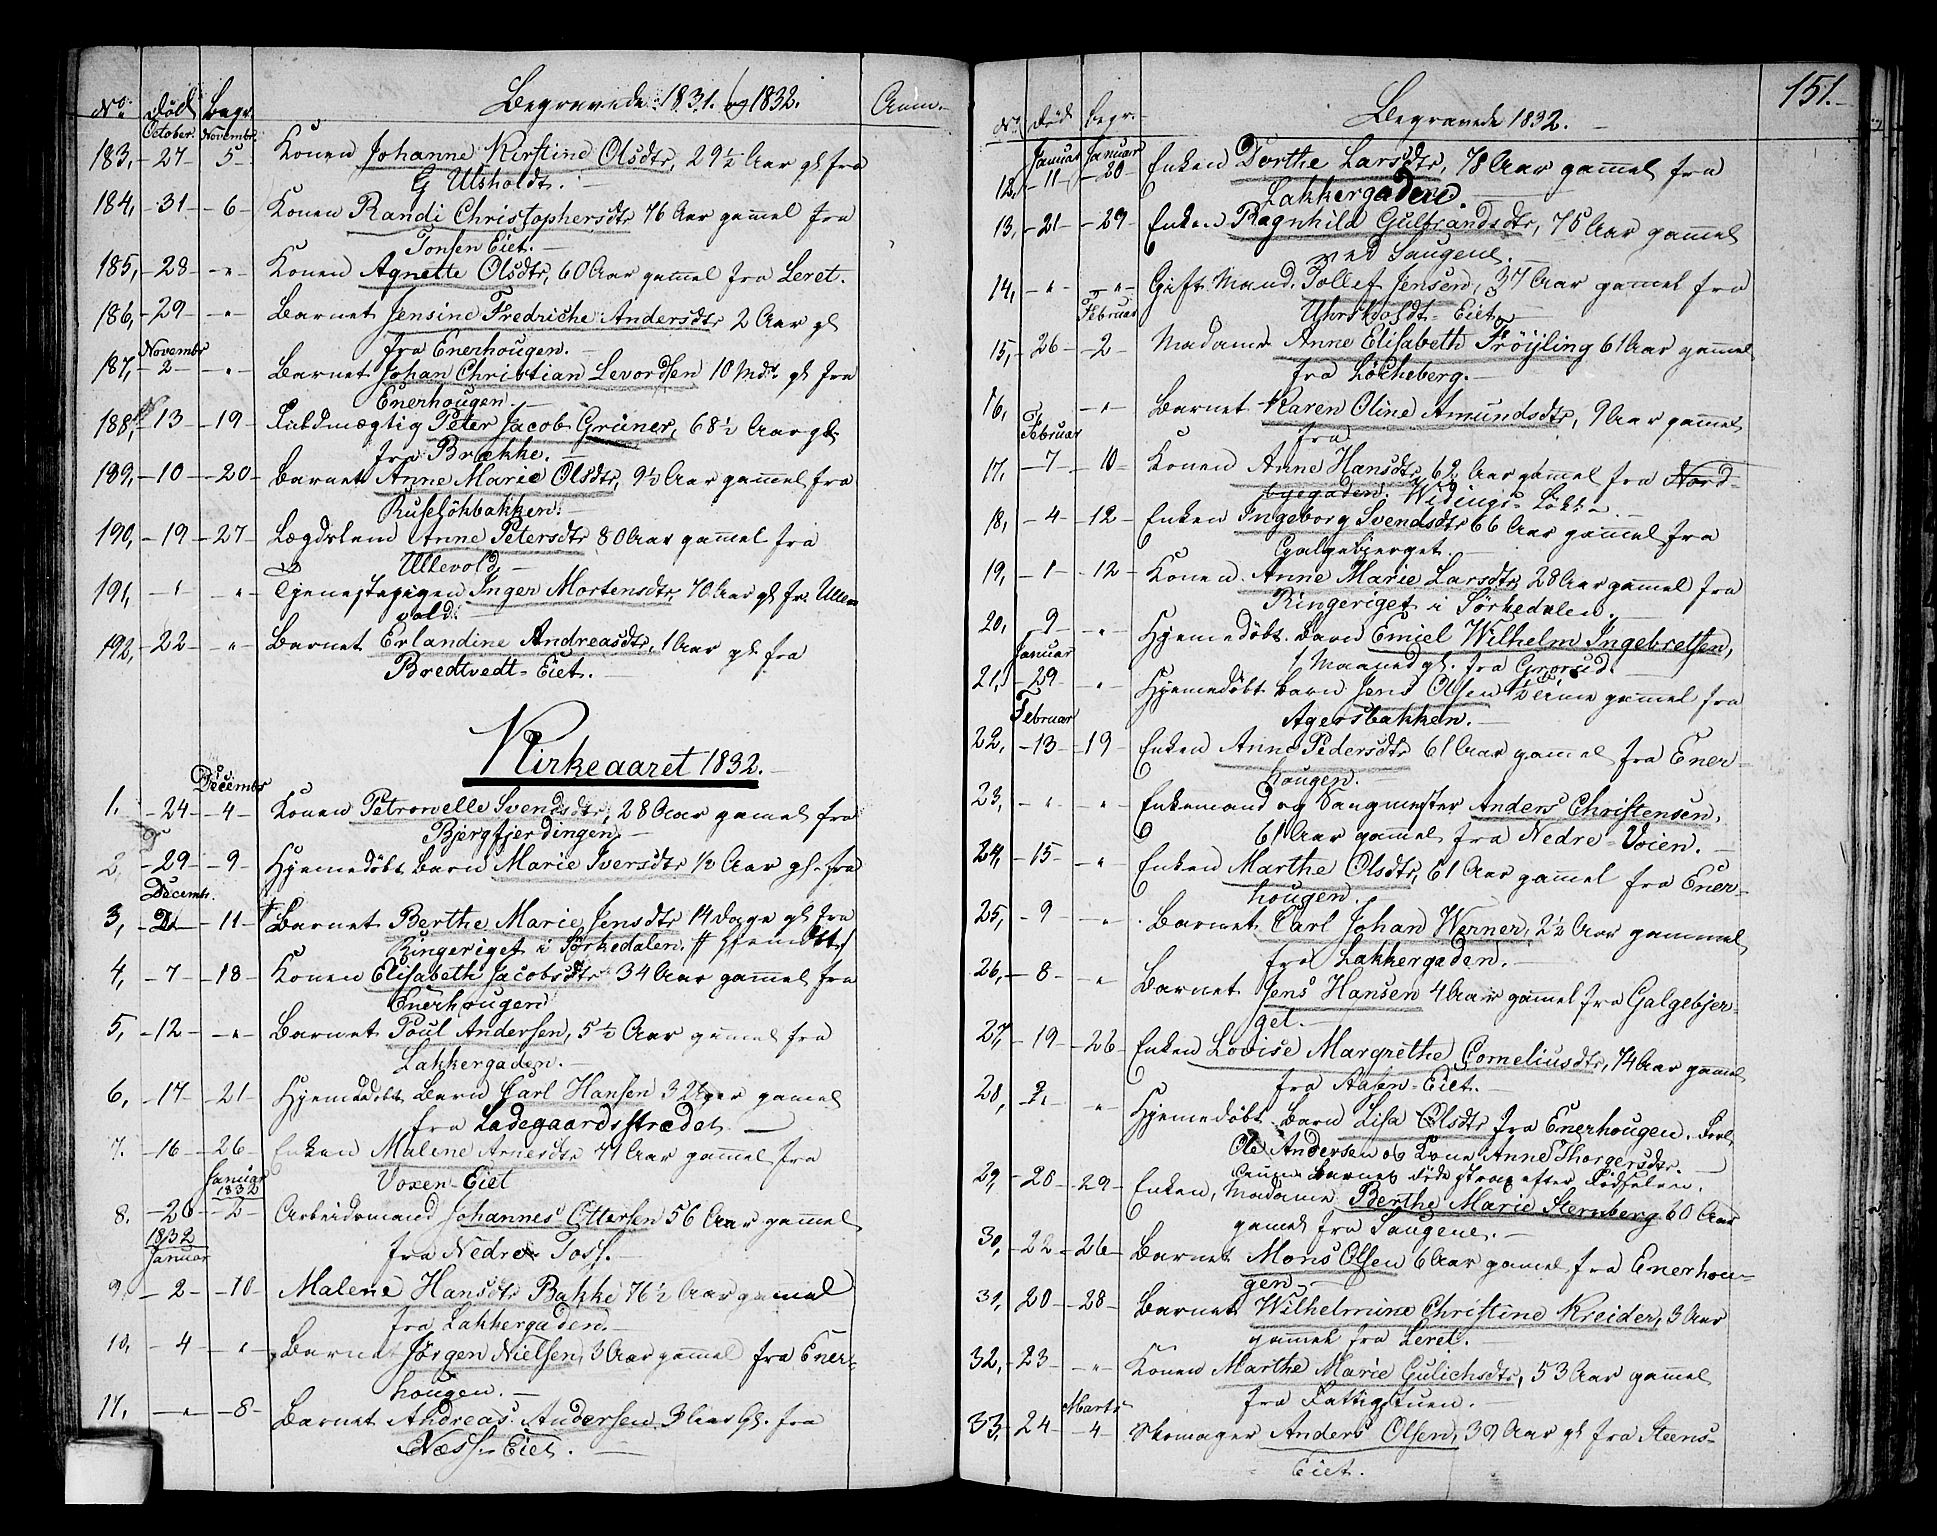 No. Død Begr. Begravede 1831. og 1832. Anm.
October. Novembr.
183, -27- 5- Konen Johanne Kirstine Olsdtr, 29 1/2 Aar gl fra
G Utsholdt.
184, -31 -6- Konen Randi Christophersdtr 76 Aar gamel fra
Tonsen Eiet.
185, -28- -"- Konen Agnette Olsdtr, 60 Aar gamel fra Leret.
186, -29- " Barnet Jensine Fredriche Andersdtr 2 Aar gl
fra Enerhougen.
Novembr
187, -2- -"- Barnet Johan Christian Levordsen 10 Mdr. gl fra
Enerhougen
188, -13 -19- Fuldmægtig Peter Jacob Grüner, 68 1/2 Aar gl
fra Brække.
189, -10 -20- Barnet Anne Marie Olsdtr, 9 1/2 Aar gammel fra
Ruseløkbakken.
190, -19 -27- Lægdslem Anne Petersdtr 80 Aar gammel fra
Ullevold
191, -"- -"- Tjenestepigen Inger Mortensdtr 70 Aar gl fr. Ulle=
vold.
192, -22- -"- Barnet Erlandine Andreasdtr, 1 Aar gl. fra
Bredtvedt-Eiet.
Kirkeaaret 1832.
Decembr
1. -24- -4- Konen Petronelle Svendsdtr, 28 Aar gamel fra
Bjergfjerdingen.
2, -29- -9- Hjemedøbt barn Marie Iversdtr 1/2 Aar gl. fra
Decembr.
3, -2- -11- Barnet Berthe Marie Jensdtr 14 dage gl fra
Ringeriget i Sørkedalen.
4, -7- -18- Konen Elisabeth Jacobsdtr 34 Aar gamel fra
Enerhougen
5, -12- -"- Barnet Poul Andersen, 5 1/2 Aar gamel fra
Lakkergaden.
6, -17- -21 Hjemedøbt Barn Carl Hansen 3 Uger gamel
fra Ladegaardsstrædet
7. -16 -26- Enken Malene Arnesdtr 71 Aar gammel fra
Voxen-Eiet
Januar
1832
8. -26 -2- Arbeidsmand Johannes Ottersen 56 Aar gammel
fra Nedre Foss.
1832
Januar
9, -2- -10- Malene Hansdtr Bakke 76 1/2 Aar gamel
fra Lakkergaden.
10, -4- -"- Barnet Jørgen Nielsen, 3 Aar gammel fra Ener=
hougen.
11, -"- -8- Barnet Andreas Andersen 3 Aar Gl. fra
Næss-Eiet.
151.
No. Død Begr. Begravede 1832.
Januar Januar
12, -11 -20 Enken Dorthe Larsdtr, 78 Aar gamel fra
Lakkergaden.
13, -21 -29 Enken Ragnhild Gulbrandsdtr, 75 Aar gammel
ved Saugene.
14, -"- -"- Gift Mand, Tollef Jensen, 37 Aar gamel fra
Februar
15, -26- -2- Madame Anne Elisabeth Frøyling 61 Aar gammel
fra Løcheberg.
16, -"- Barnet Karen Oline Amundsdtr, 9 Aar gammel
fra
Februar
17, -7 -10- Konen Anne Hansdtr, 62 Aar gamel fra Nord=
byegaden. Widings-Løkke.
18, -4 -12- Enken Ingeborg Svendsdtr 66 Aar gammel fra
Galgebjerget.
19, -1 -12 Konen Anne Marie Larsdtr, 28 Aar gamel fra
Ringeriget i Sørkedalen.
20, 9 -"- Hjemedøbt barn Emiel Wilhelm Ingebretsen,
Maaned gl. fra Grorud.
Januar
21, -29- " Hjemedøbt barn Jens Olsen 1/2 time gammel fra
Agersbakken.
Februar
22, -13 -19 Enken Anne Pedersdtr 61 Aar gamel fra Ener=
hougen.
23, -"- -"- Enkemand og Saugmester Anders Christensen,
61 Aar gammel fra Nedre-Voien.
24, -15- -"- Enken Marthe Olsdtr, 61 Aar gammel fra Ener=
hougen.
25, -9 " Barnet Carl Johan Werner, 2 1/2 Aar gammel
fra Lakkergaden.
26, -8- " Barnet Jens Hansen 4 Aar gamel fra Galgebjer=
get.
27, -19 -26 Enken Lovise Margrethe Corneliusdtr, 74 Aar gamel
fra Aasen-Eiet.
28, 2. " Hjemedøbt Barn Lisa Olsdtr fra Enerhougen. Forl
Ole Andersen og Kone Anne Thorgersdtr.
Barnet døde strax efter Fødselen.
29, -20 -29- Enken, Madame Berthe Marie Sternberg 60 Aar
gamel fra Saugene.
30, -22 -26- Barnet Mons Olsen 6 Aar gamel fra Enerhou=
gen.
31, 20 -28- Barnet Wilhelmine Christine Kreider, 3 Aar
gamel fra Leret.
32, -23- -"- Konen Marthe Marie Gulichsdtr, 53 Aar gamel
fra Fattigstuen.
Marts
33, -24 -4 Skomager Anders Olsen, 39 Aar gl fra Steens=
Eiet.